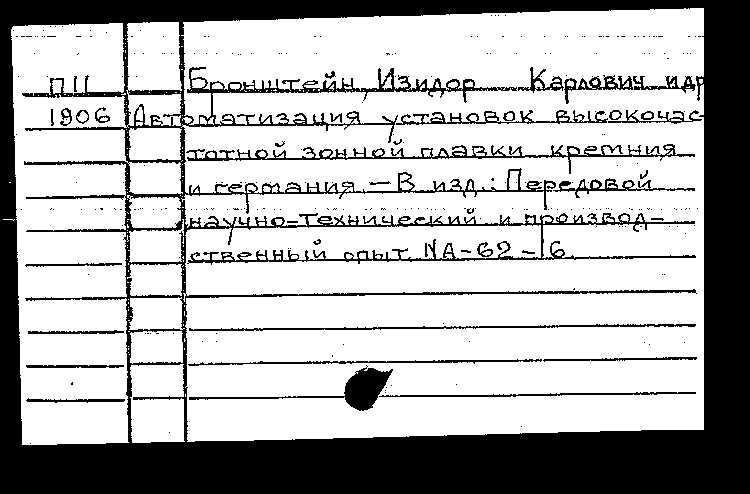 ПII Бронштейн, Изидор Карлович и др
1906 Автоматизация установок высокочас-
тотной зонной плавки кремния
и германия. — В изд.: Передовой
научно-технический и производ-
ственный опыт. NA-62-16.